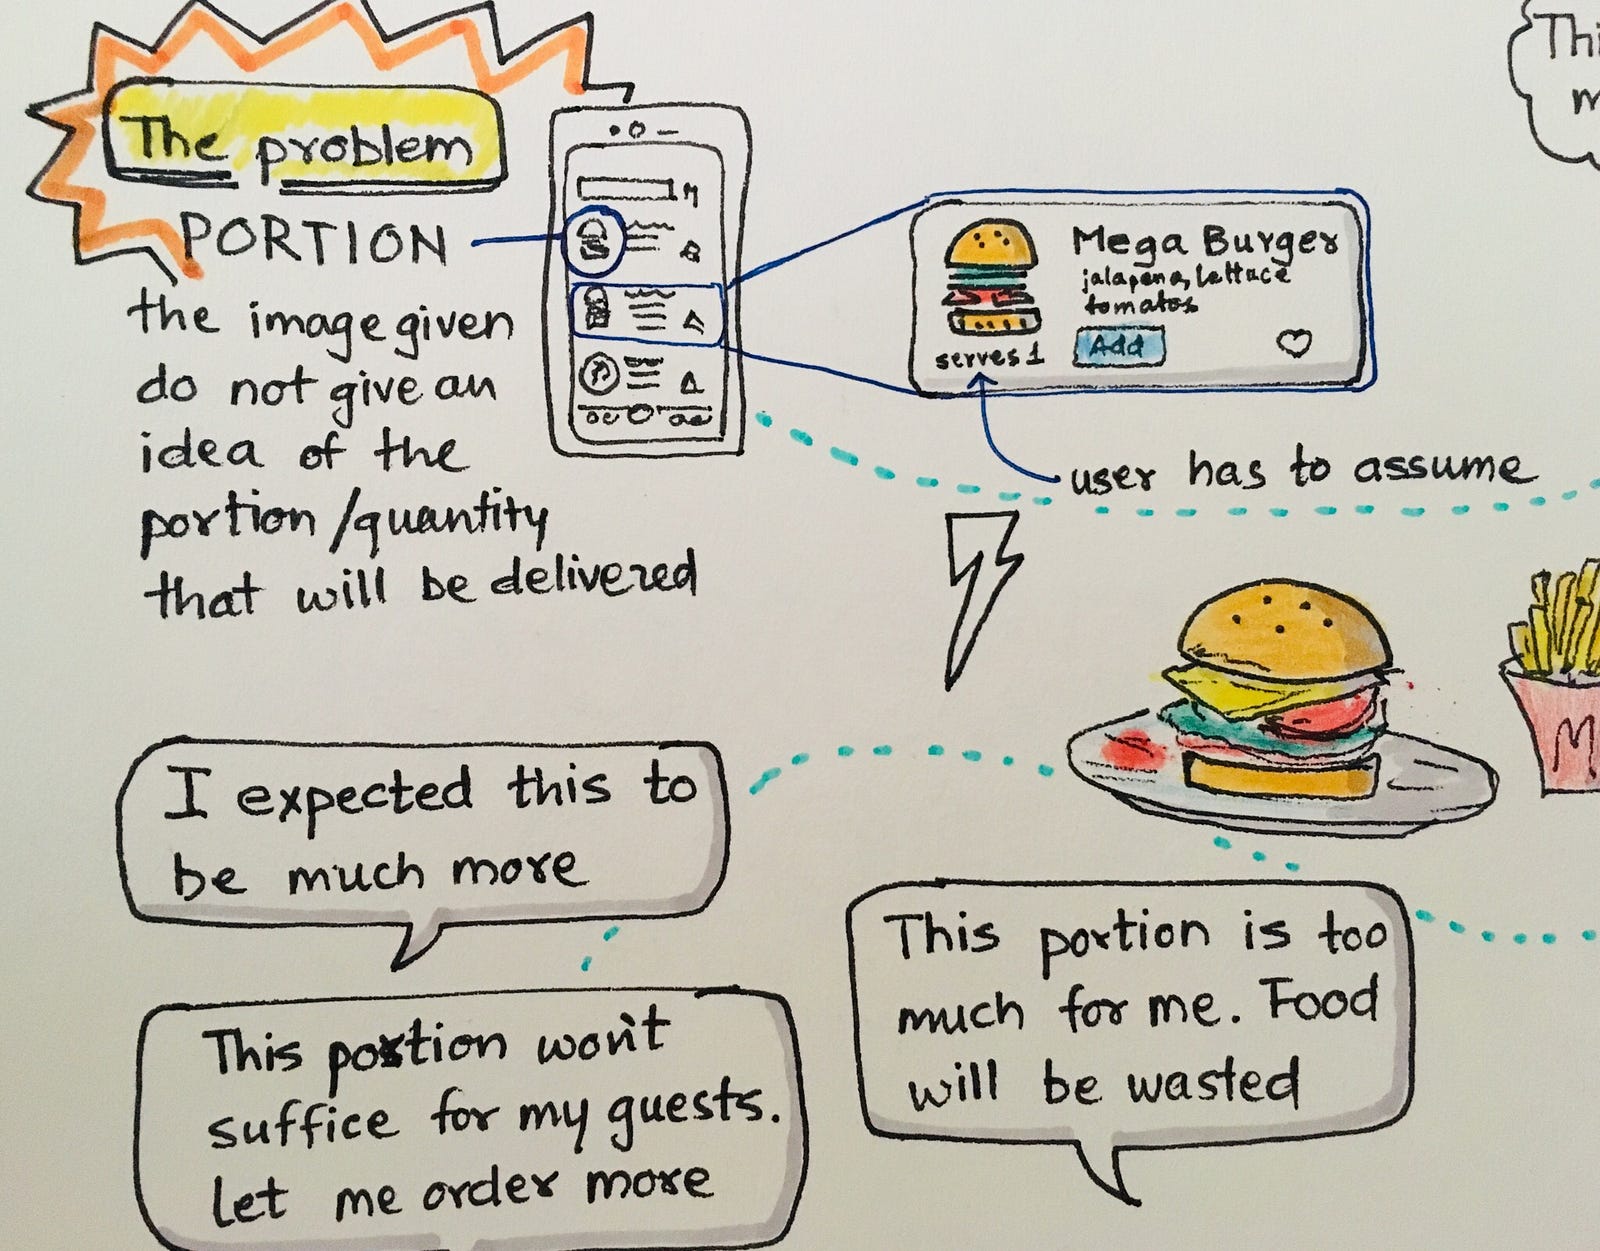 The problem
PORTION
the image given
do not give an
idea of the
portion/quantity
that will be delivered
Mega Burger
jalapena, lettuce
tomatos
serves 1
Add
user has to assume
M
I expected this to
be much more
This portion won't
suffice for my guests.
Let me order more
This portion is too
much for me. Food
will be wasted